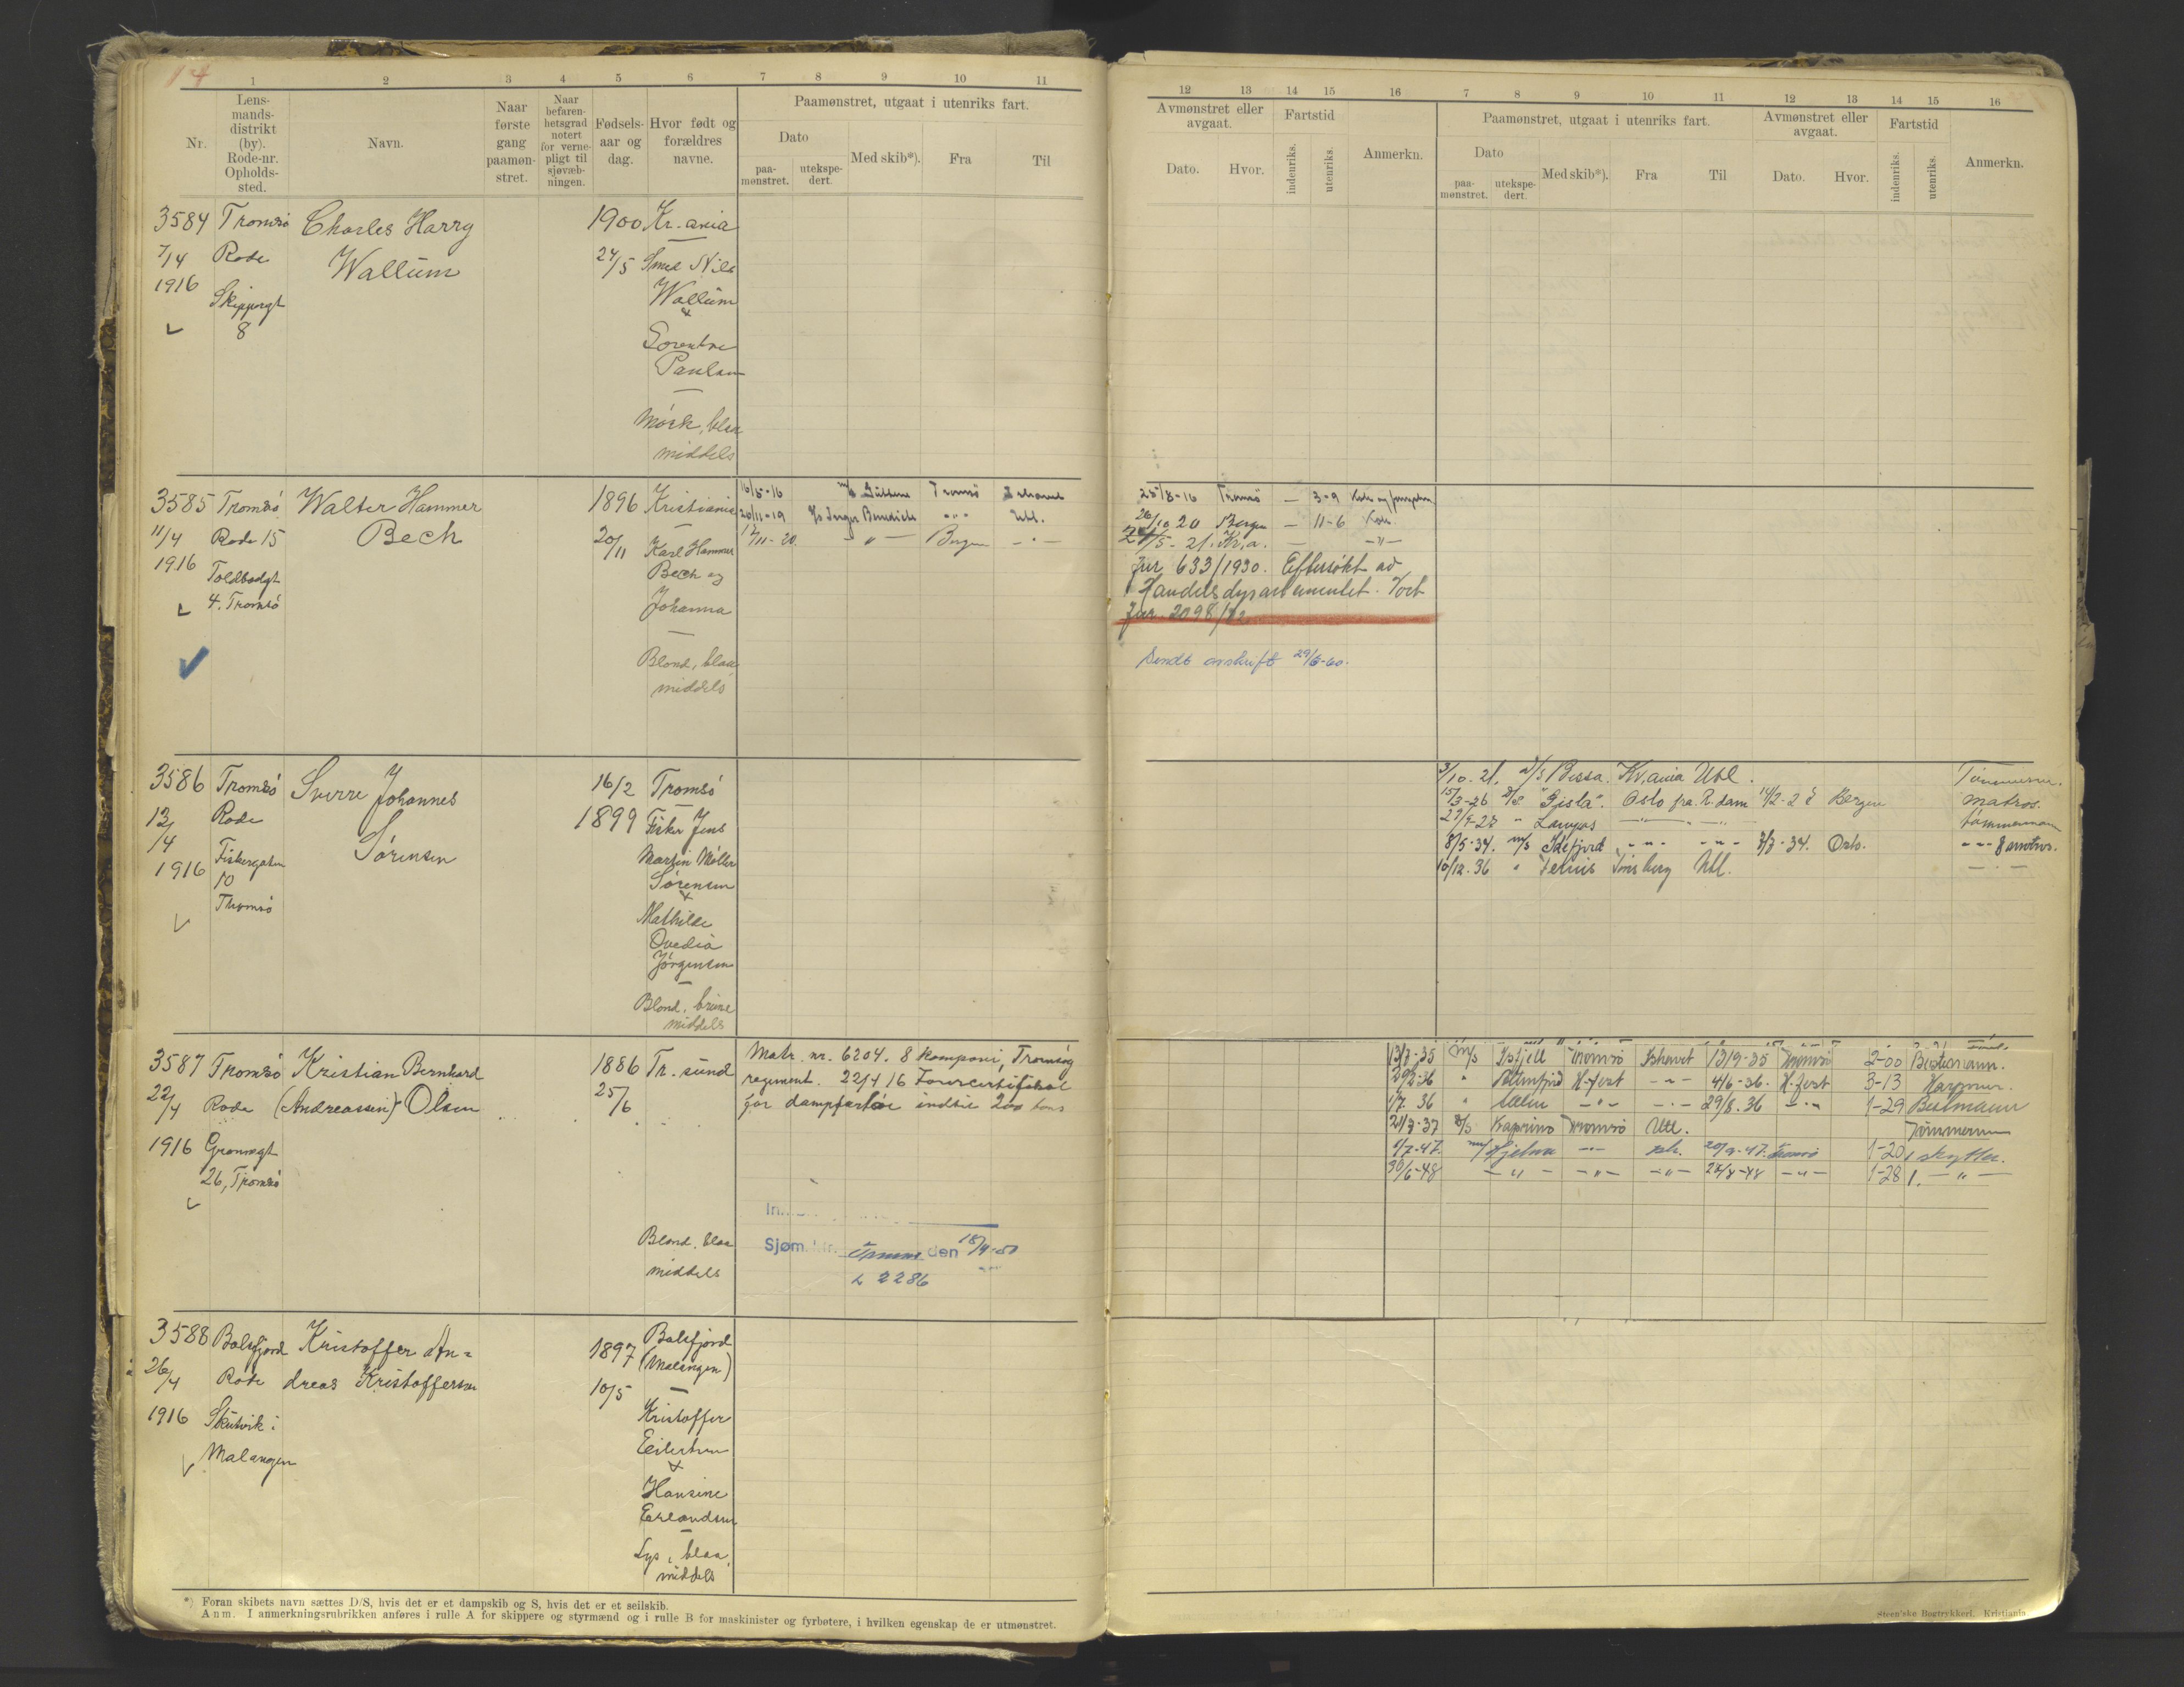 14
1 2 3 4 5 6 7 8 9 10 11
Nr.
Lens-
mands-
distrikt
(by).
Rode-nr.
Opholds-
sted.
Navn.
Naar
første
gang
paamøn-
stret.
Naar
befaren-
hetsgrad
notert
for verne-
pligt til
sjøvæb-
ningen.
Fødsels-
aar og
dag.
Hvor født og
forældres
navne.
Paamønstret, utgaat i utenriks fart.
Dato
paa-
mønstret.
utekspe-
dert.
Med skib*).
Fra
Til
3584 Tromsø Charles Harry 1900 Kr.ania
7/4 Rode Wallum 24/5 Smed Nils
1916 Skippergt Wallum
8 &
Paulsen
Mørk, blaa
middels
3585 Tromsø Walter Hammer 1896 Kristiania 16/5-16 Tromsø Ishavet
11/4 Rode 15 Bech 20/11 Karl Hammer 20/11-19 Utl.
1916 Toldbodgt Bech og 12/11-20 Bergen
4. Tromsø Johanna
Blond, blaa
middels
3586 Tromsø Sverre Johannes 16/2 Tromsø
12/4 Rode Sørensen 1899 Fisker Jens
1916 Fiskergaten Martin Møller
10 Sørensen
Tromsø &
Mathilde
Ovedia
Jørgensen
Blond, brune
middels
3587 Tromsø Kristian Bernhard 1886 Tr.sund Matr. nr. 6204. 8 kompani, Tromsøg
22/4 Rode (Andreassen) Olsen 25/6 regiment. 22/4 16
1916 Grønnegt for dampfartøi indtil 200 tons
26, Tromsø
Blond, blaa
middels
Sjøm. den 18/4-50
L 2286
3588 Balsfjord Kristoffer An= 1897 Balsfjord
26/4 Rode dreas Kristoffersen 10/5 (Malangen)
1916 Skutvik i Kristoffer
Malangen Eilertsen
&
Hansine
Erlandsen
Lys, blaa,
middels
*) Foran skibets navn sættes D/S, hvis det er et dampskib og S, hvis det er et seilskib.
Anm. I anmerkningsrubrikken anføres i rulle A for skippere og styrmænd og i rulle B for maskinister og fyrbøtere, i hvilken egenskap de er utmønstret.
12 13 14 15 16 7 8 9 10 11 12 13 14 15 16
Avmønstret eller
avgaat.
Dato. Hvor.
Fartstid
indenriks. utenriks.
Anmerkn.
Paamønstret, utgaat i utenriks fart.
Dato
paa-
mønstret.
utekspe-
dert.
Med skib*). Fra Til
Avmønstret eller
avgaat.
Dato. Hvor.
Fartstid
indenriks. utenriks.
Anmerkn.
25/8-16 Tromsø — 3-9
26/10 20 Bergen — 11-6 Kok.
24/5-21. Kr.a. — -"-
Jur 633/1930. Eftersøkt av
Handelsdepartementet. Vort
Jur. 2098/
Sendt avskrift 29/6-60.
3/10-21. D/S Bessa. Kr.ania Utl.
15/3-26 D/S "Gisla". Oslo fra R.dam Bergen matros.
tømmermann
8/5-34. m/s Idefjord -"- -"- 3/7-34. Oslo.
10/12-36 " Tønsberg Utl.
13/7-35 M/s Isfjell Tromsø Ishavet 13/9-35 Tromsø 2-00 Bestemann.
29/2-36 " Polmfjord H-fest -"- 4/6-36. H.fest 3-13
1/7. 36 " -"- -"- 29/8. 36 -"- 1-29 Bestmann
21/7-37 D/S Kaprino Tromsø Utl. Tømmermn
1/7-47. m/ Hjelma -"- Ish. 20/9-47. Tromsø 1-20 skytter.
30/6-48 -"- -"- -"- 28/8-48 -"- 1-28 1. -"-
Steen'ske Bogtrykkeri. Kristiania